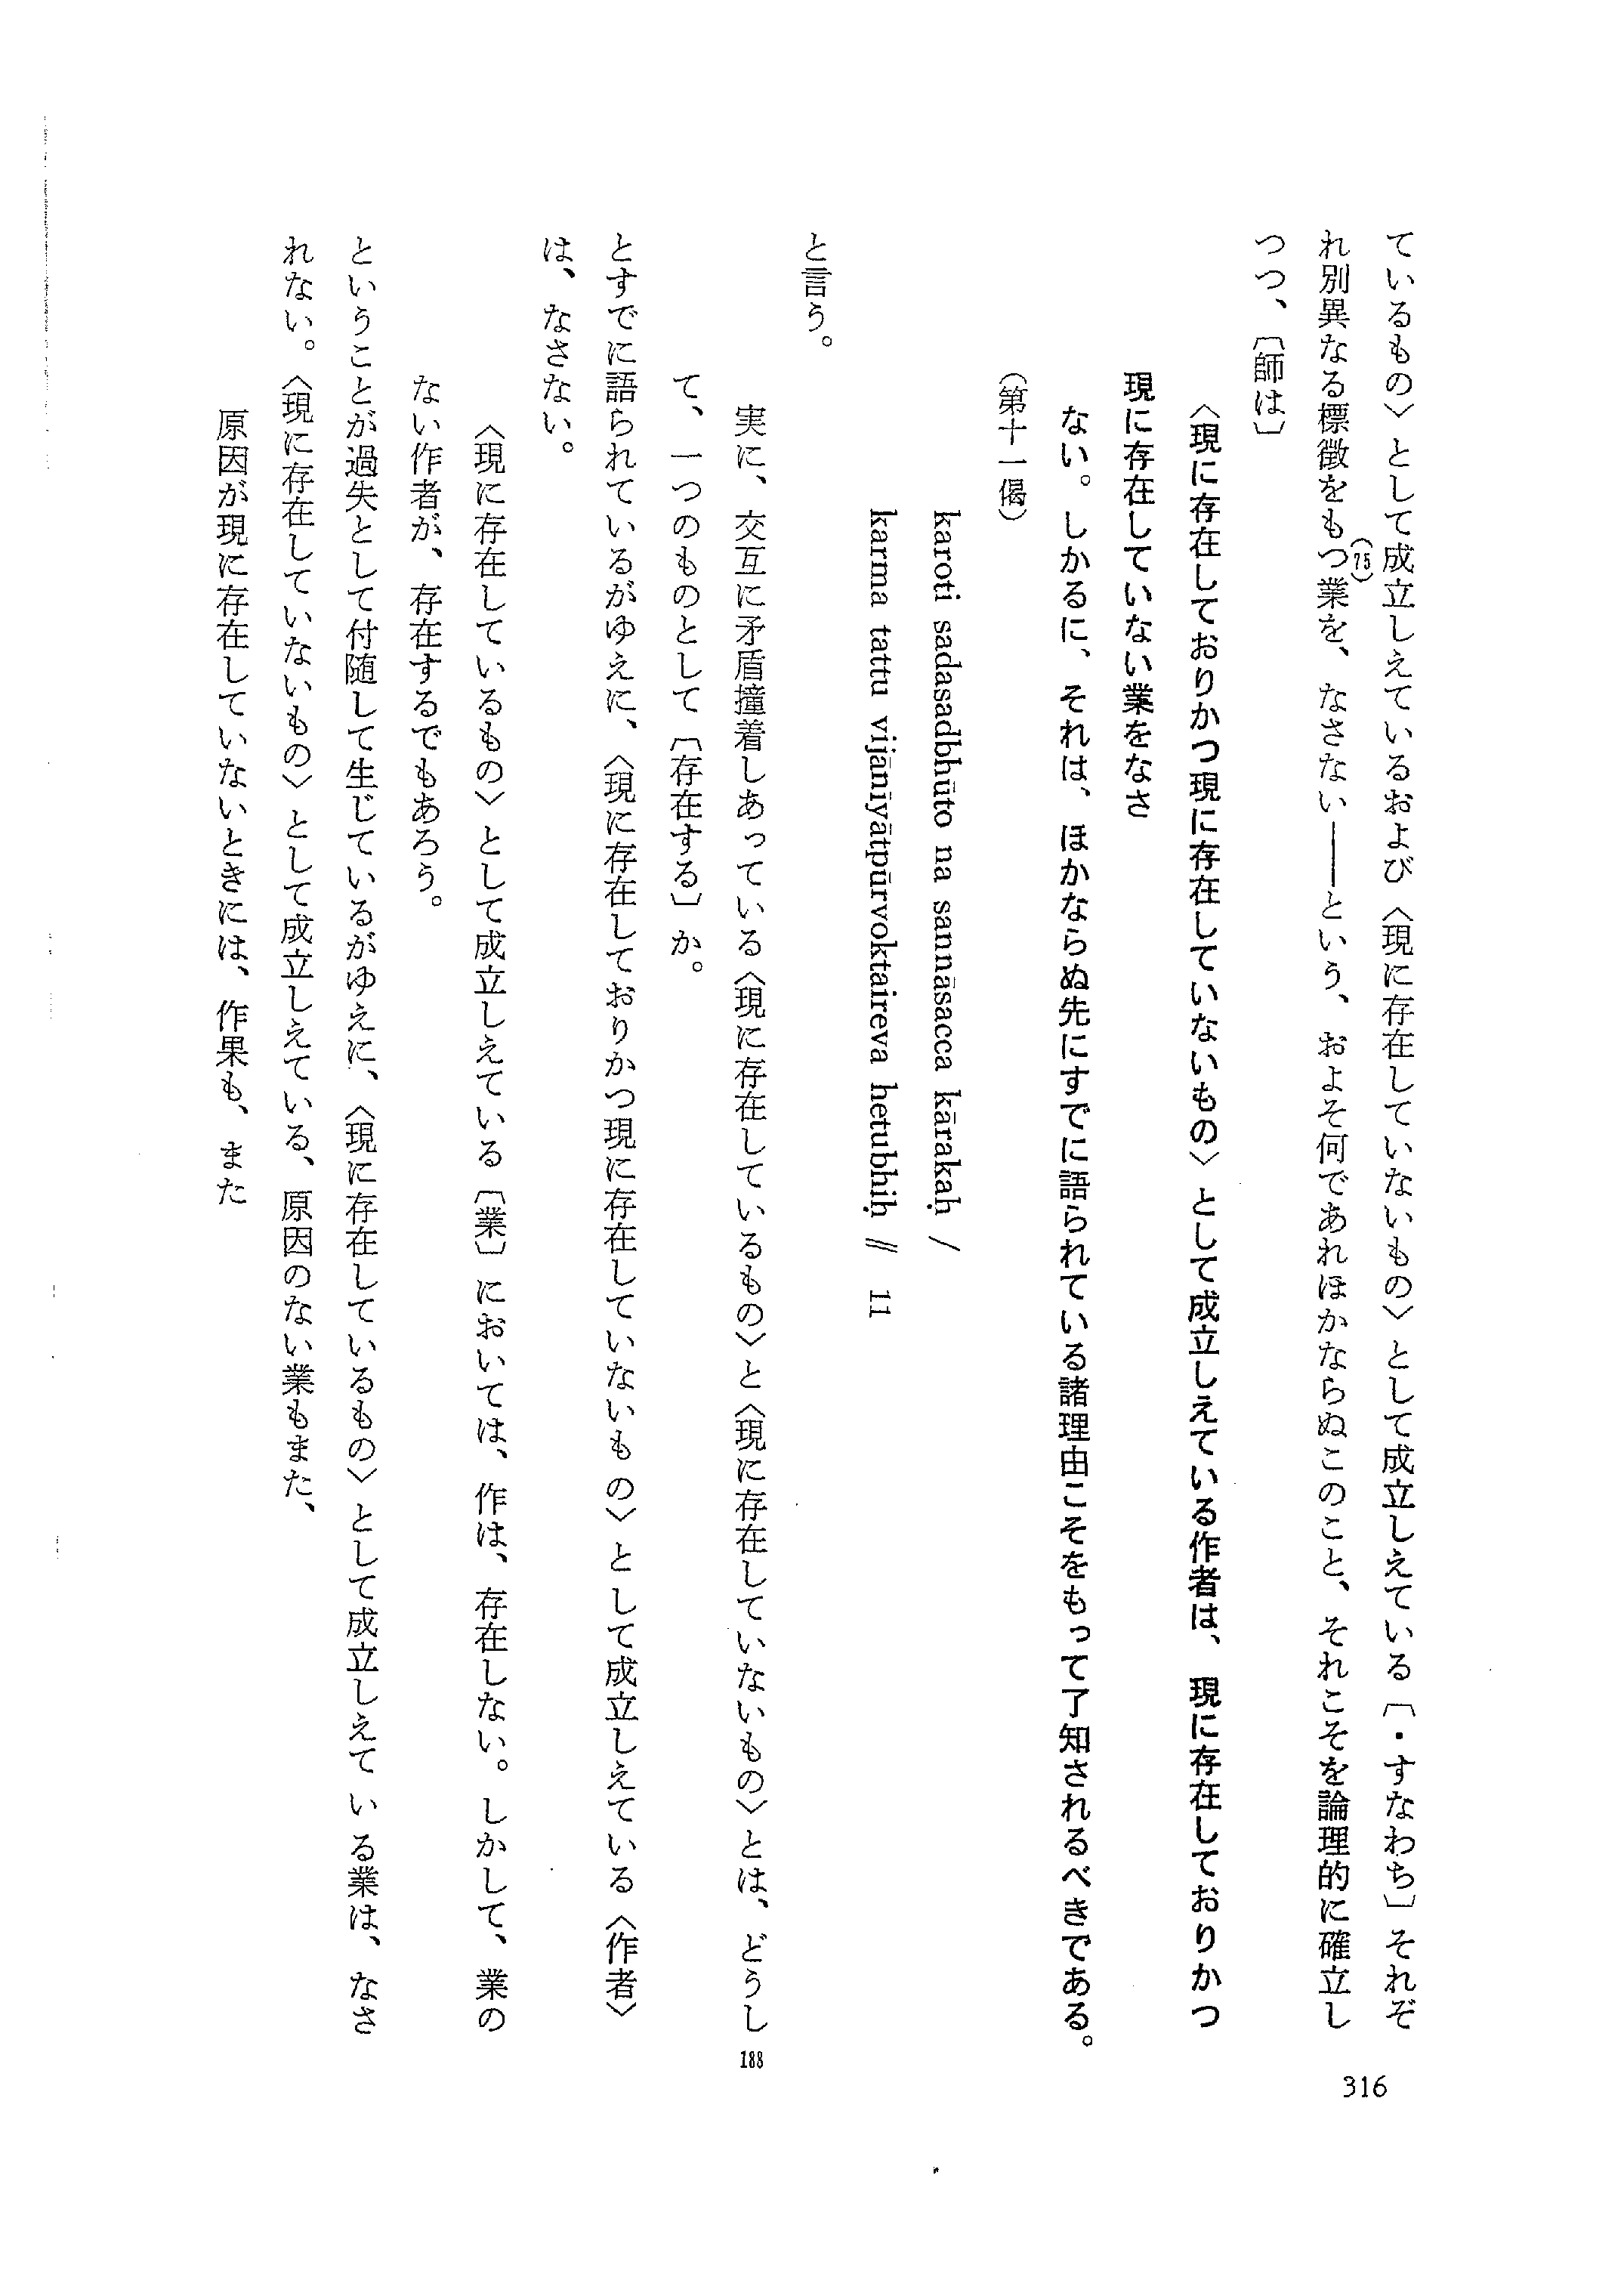 ているもの〉として成立しえているおよび〈現に存在していないもの〉として成立しえている〔・すなわち〕それぞ
れ別異なる標徴をもつ(75)業を、なさない――という、およそ何であれほかならぬこのこと、それこそを論理的に確立し
つつ、〔師は〕
〈現に存在しておりかつ現に存在していないもの〉として成立しえている作者は、現に存在しておりかつ
現に存在していない業をなさ
ない。しかるに、それは、ほかならぬ先にすでに語られている諸理由こそをもって了知されるべきである。
(第十一偈)
karoti sadasadbhūto na sannāsacca kārakaḥ /
karma tattu vijānīyātpūrvoktaireva hetubhiḥ // 11
と言う。
実に、交互に矛盾撞着しあっている〈現に存在しているもの〉と〈現に存在していないもの〉とは、どうし
188
て、一つのものとして〔存在する〕か。
とすでに語られているがゆえに、〈現に存在しておりかつ現に存在していないもの〉として成立しえている〈作者〉
は、なさない。
〈現に存在しているもの〉として成立しえている〔業〕においては、作は、存在しない。しかして、業の
ない作者が、存在するでもあろう。
ということが過失として付随して生じているがゆえに、〈現に存在しているもの〉として成立しえている業は、なさ
れない。〈現に存在していないもの〉として成立しえている、原因のない業もまた、
原因が現に存在していないときには、作果も、また
316